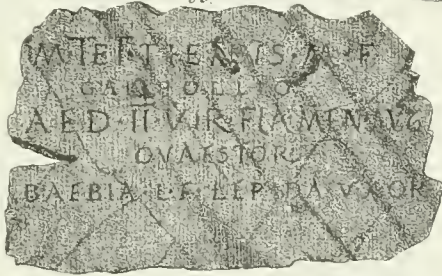 M·TETTIENVS M·F
GAL POLLIO
AED·II VIR FLAMEN AVG
QVAESTOR
BAEBIA L·F·LEPIDA VXOR